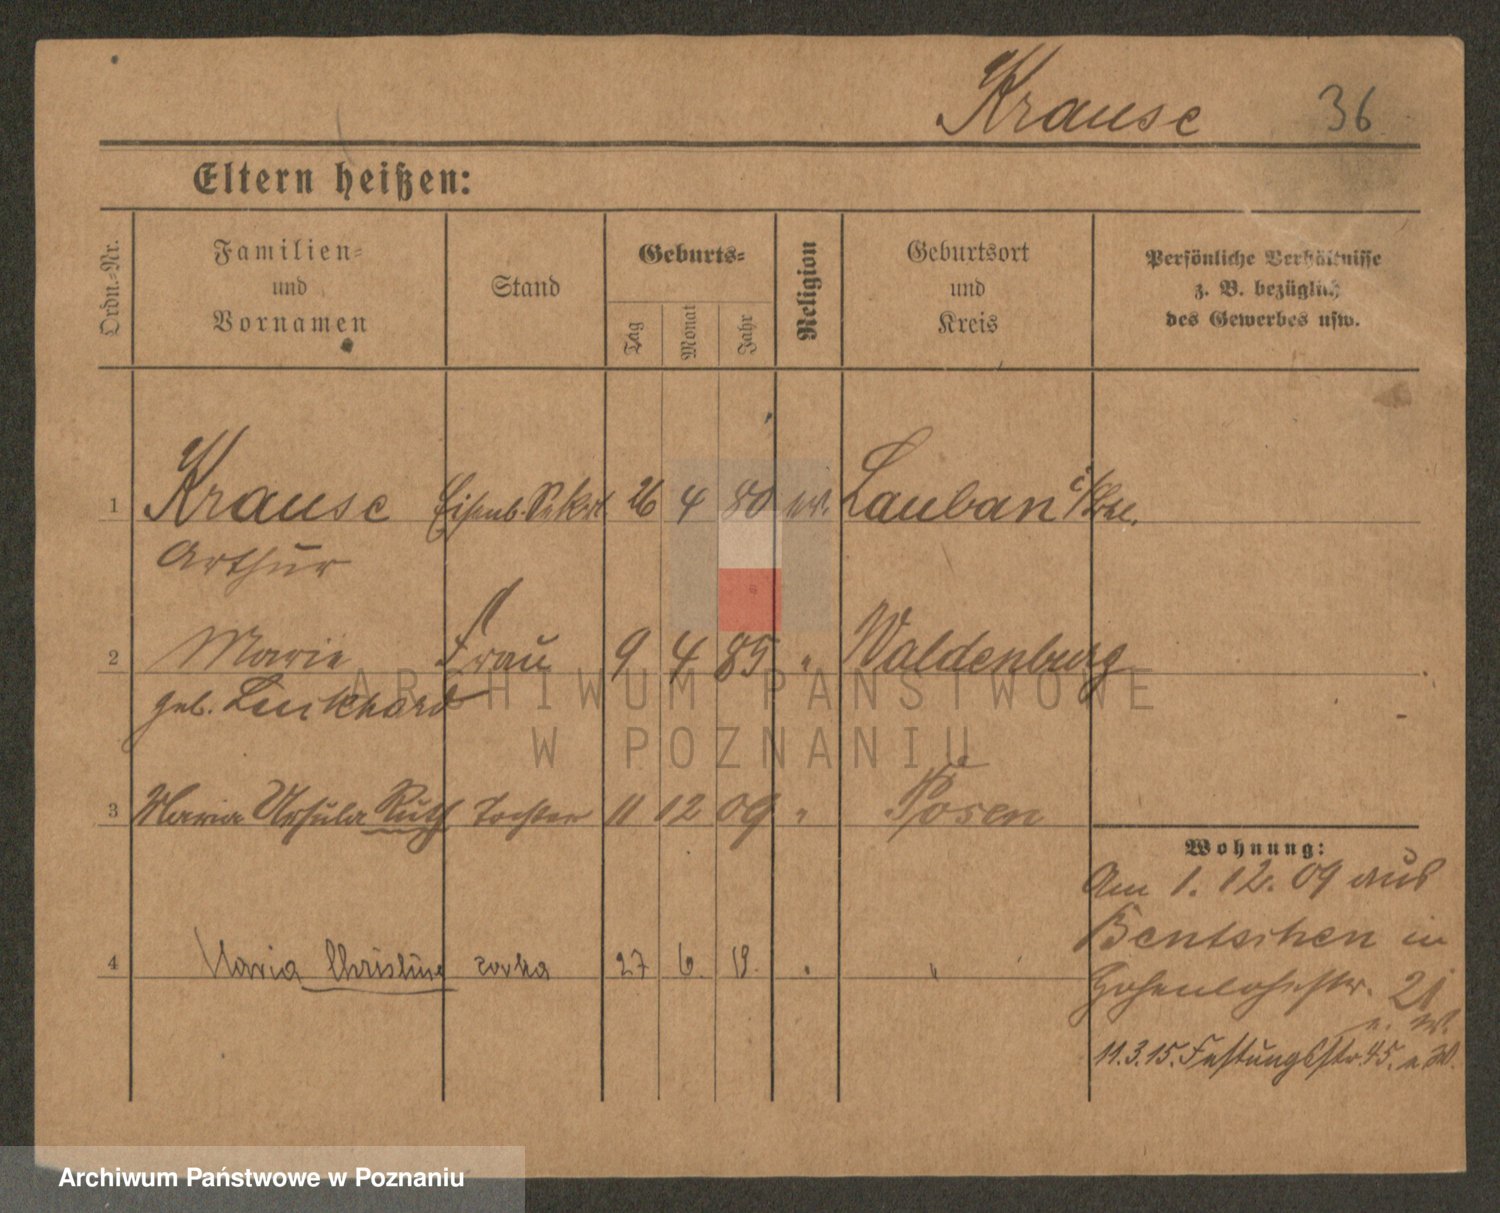 Krause 36
Eltern heißen:
Ordn.-Nr.
Familien-
und
Vornamen
Stand
Geburts-
Tag
Monat
Jahr
Religion
Geburtsort
und
Kreis
Persönliche Verhältnisse
z. B. bezüglich
des Gewerbes usw.
1 Krause Eisenb. Sekret 26 4 80 ev. Lauban
Arthur
2 Marie Frau 9 4 85 " Waldenburg
geb. Lenkhard
3 Maria Ursula Ruth Tochter 11 12 09 " Posen
Wohnung:
Am 1. 12. 09 aus
Bentschen in
Hohenlohestr. 21
11.3.15. Festungsstr. 45. e. W.
4 Maria Christine córka 27 6. 19. " "
ARCHIWUM PAŃSTWOWE
W POZNANIU
Archiwum Państwowe w Poznaniu